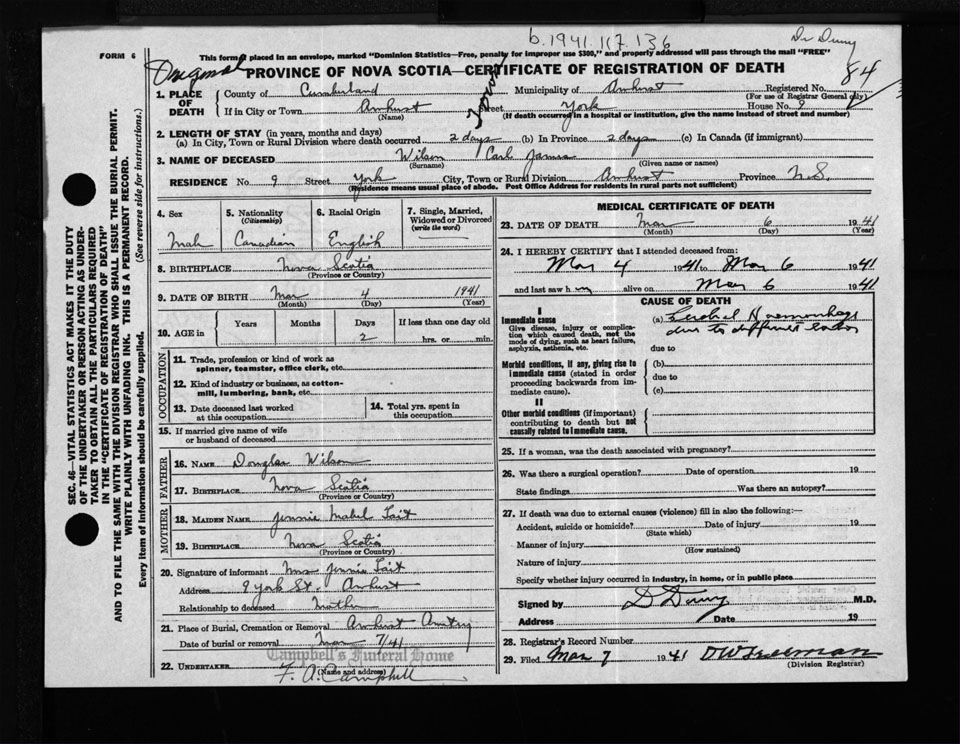 b. 1941 117. 136
Dr Drury
FORM 6
This form if placed in an envelope, marked "Dominion Statistics—Free, penalty for improper use $300," and properly addressed will pass through the mail "FREE"
Original
PROVINCE OF NOVA SCOTIA—CERTIFICATE OF REGISTRATION OF DEATH
84
1. PLACE OF DEATH County of Cumberland Municipality of Amherst Registered No.
(For use of Registrar General only)
If in City or Town Amherst Street York House No. 9
(Name) (If death occurred in a hospital or institution, give the name instead of street and number)
Town
2. LENGTH OF STAY (in years, months and days)
(a) In City, Town or Rural Division where death occurred 2 days (b) In Province 2 days (c) In Canada (if immigrant)
3. NAME OF DECEASED Wilson Carl James
(Surname) (Given name or names)
RESIDENCE No. 9 Street York City, Town or Rural Division Amherst Province N.S.
(Residence means usual place of abode. Post Office Address for residents in rural parts not sufficient)
4. Sex 5. Nationality (Citizenship) 6. Racial Origin 7. Single, Married, Widowed or Divorced (write the word)
Male Canadian English
8. BIRTHPLACE Nova Scotia
(Province or Country)
9. DATE OF BIRTH Mar 4 1941
(Month) (Day) (Year)
10. AGE in Years Months Days If less than one day old
2 hrs. or min.
OCCUPATION
11. Trade, profession or kind of work as spinner, teamster, office clerk, etc.
12. Kind of industry or business, as cotton-mill, lumbering, bank, etc.
13. Date deceased last worked at this occupation
14. Total yrs. spent in this occupation
15. If married give name of wife or husband of deceased
FATHER
16. NAME Douglas Wilson
17. BIRTHPLACE Nova Scotia
(Province or Country)
MOTHER
18. MAIDEN NAME Jennie Mabel Tait
19. BIRTHPLACE Nova Scotia
(Province or Country)
20. Signature of informant Mrs Jennie Tait
Address 9 York St. Amherst
Relationship to deceased Mother
21. Place of Burial, Cremation or Removal Amherst
Date of burial or removal Mar 7/41
Campbell's Funeral Home
22. UNDERTAKER F. A. Campbell
(Name and address)
MEDICAL CERTIFICATE OF DEATH
23. DATE OF DEATH Mar 6 1941
(Month) (Day) (Year)
24. I HEREBY CERTIFY that I attended deceased from:
Mar 4 1941 to Mar 6 1941
and last saw h m alive on Mar 6 1941
CAUSE OF DEATH
I
Immediate cause (a) Cerebral Haemorrhage
Give disease, injury or complication which caused death, not the mode of dying, such as heart failure, asphyxia, asthenia, etc.
due to difficult labor
due to
Morbid conditions, if any, giving rise to immediate cause (stated in order proceeding backwards from immediate cause).
(b)
due to
(c)
II
Other morbid conditions (if important) contributing to death but not causally related to immediate cause.
25. If a woman, was the death associated with pregnancy?
26. Was there a surgical operation? Date of operation 19
State findings Was there an autopsy?
27. If death was due to external causes (violence) fill in also the following:—
Accident, suicide or homicide? Date of injury 19
(State which)
Manner of injury
(How sustained)
Nature of injury
Specify whether injury occurred in industry, in home, or in public place
Signed by D Drury M.D.
Address Date 19
28. Registrar's Record Number
29. Filed Mar 7 1941 DW Freeman
(Division Registrar)
SEC. 46—VITAL STATISTICS ACT MAKES IT THE DUTY
OF THE UNDERTAKER OR PERSON ACTING AS UNDER-
TAKER TO OBTAIN ALL THE PARTICULARS REQUIRED
IN THE "CERTIFICATE OF REGISTRATION OF DEATH"
AND TO FILE THE SAME WITH THE DIVISION REGISTRAR WHO SHALL ISSUE THE BURIAL PERMIT.
WRITE PLAINLY WITH UNFADING INK. THIS IS A PERMANENT RECORD.
Every item of information should be carefully supplied. (See reverse side for instructions.)